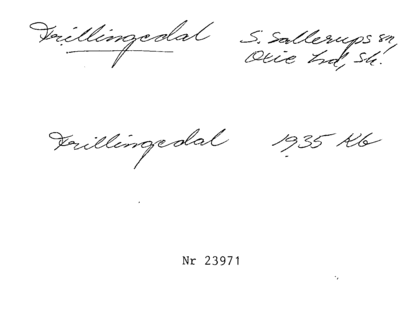 Trillingedal S. Sallerups sn,
Oxie hd, Sk.
Trillingedal 1935 Kb
Nr 23971